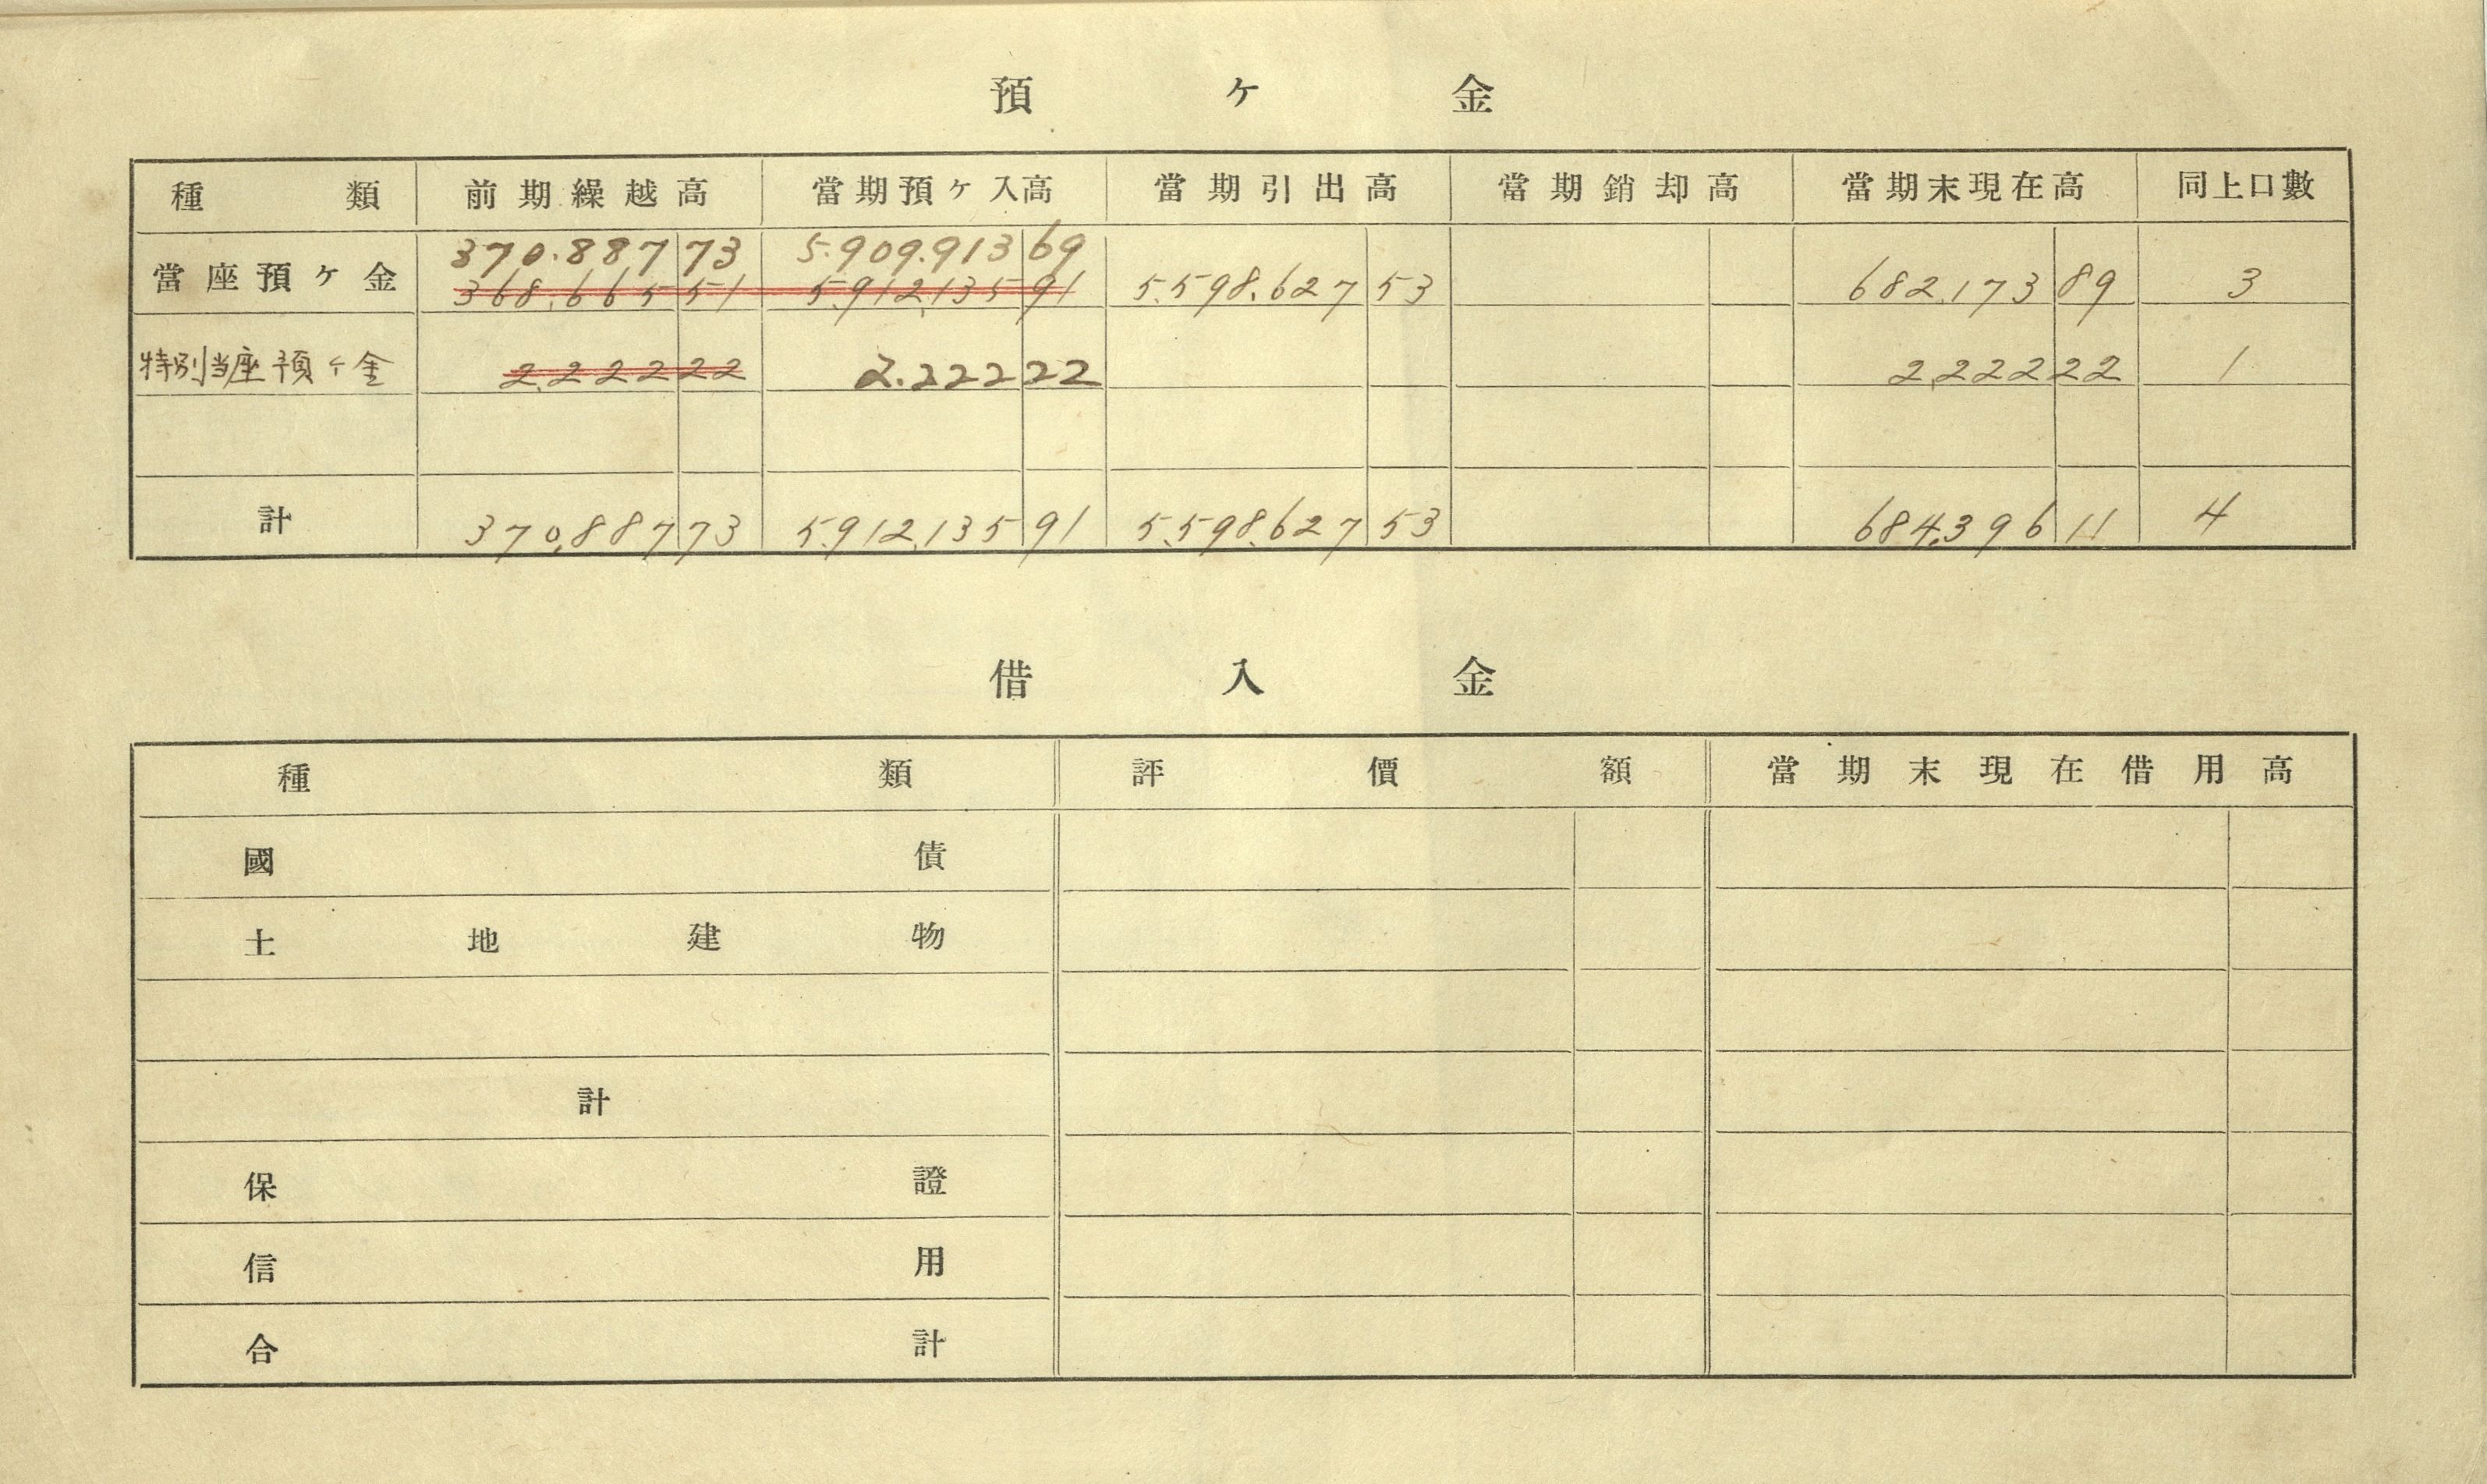 預ケ金
種類 前期繰越高 當期預ケ入高 當期引出高 當期銷却高 當期末現在高 同上口數
370.887 73 5.909.913 69
當座預ケ金 368,665 51 5,912,135 91 5,598,627 53 682,173 89 3
特別当座預ケ金 2,222 22 2.222 22 2,222 22 1
計 370,887 73 5,912,135 91 5,598,627 53 684,396 11 4
借入金
種類 評價額 當期末現在借用高
國債
土地建物
計
保證
信用
合計